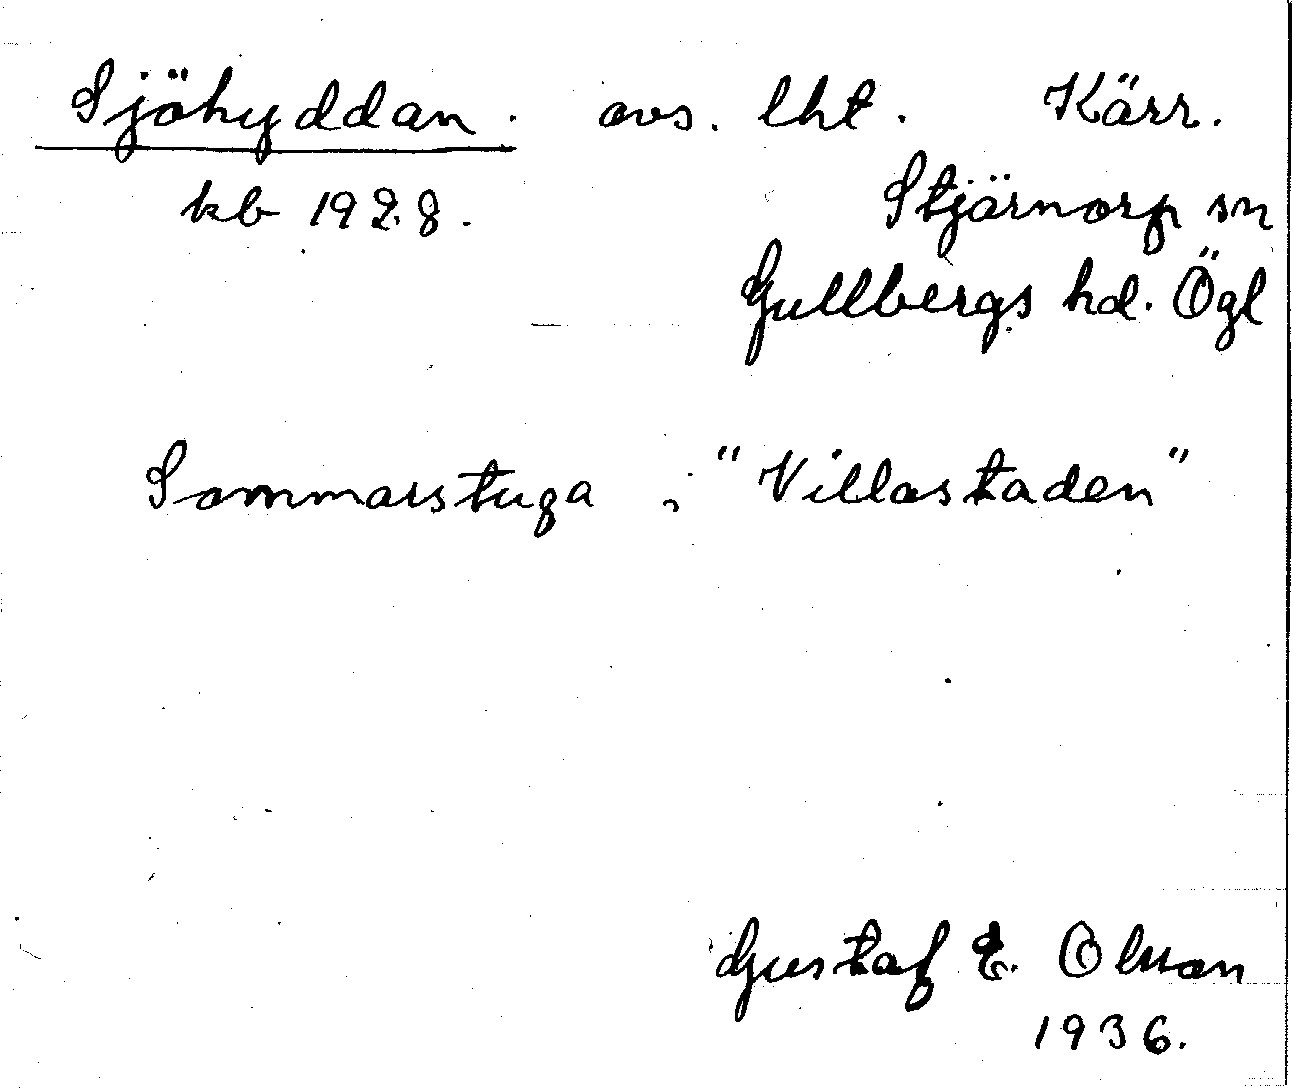 Sjöhyddan. avs. lht. Kärr.
kb 1928. Stjärnorp sn
Gullbergs hd. Ögl
Sommarstuga i "Villastaden"
Gustaf E. Olsson
1936.